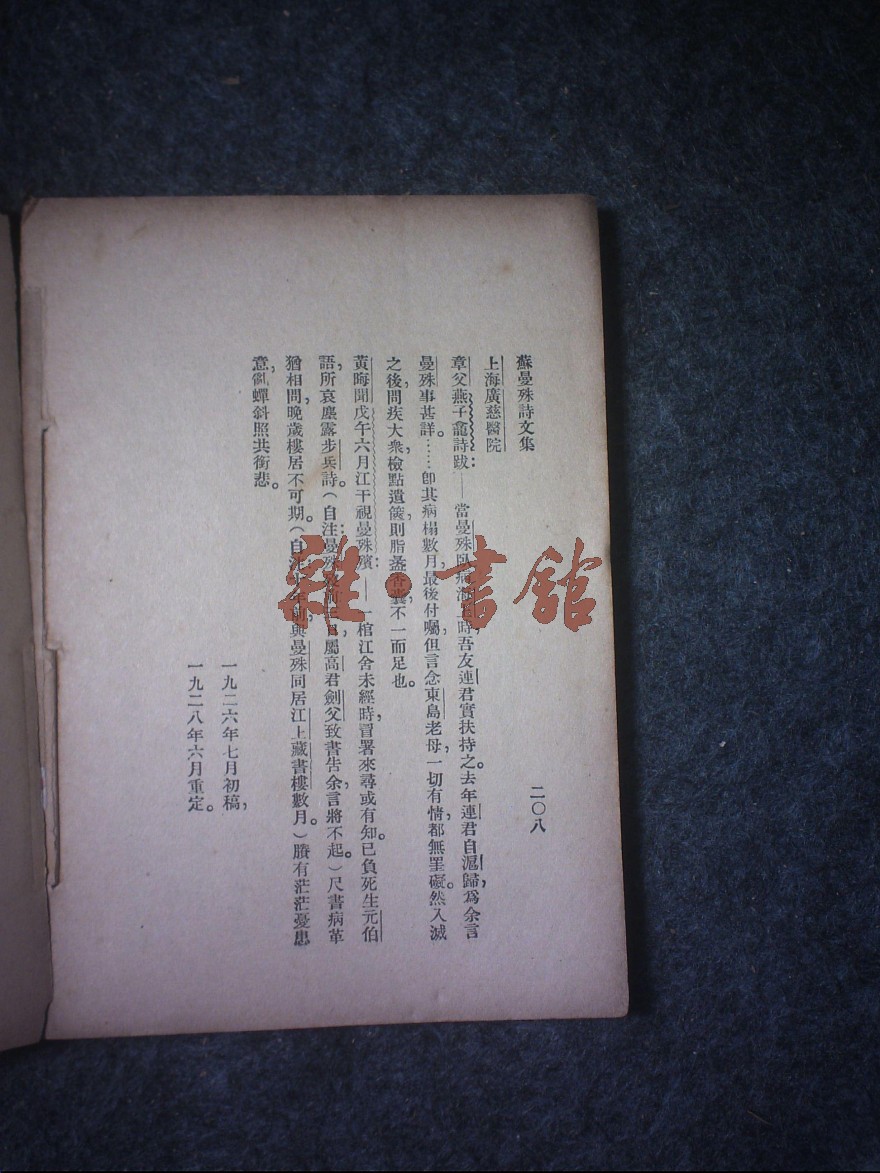 蘇曼殊詩文集
二〇八
上海廣慈醫院
章父燕子龕詩跋：——當曼殊臥病滬上時，吾友連君實扶持之。去年連君自滬歸，爲余言
曼殊事甚詳。……卽其病榻數月，最後付囑，但言念東島老母，一切有情，都無罣礙。然入滅
之後，問疾大衆，檢點遺篋，則脂盝香囊，不一而足也。
黃晦聞戊午六月江干視曼殊殯：——一棺江舍未經時，冒署來尋或有知。已負死生元伯
語，所哀塵露步兵詩。（自注：曼殊前一日，屬高君劍父致書吿余，言將不起。）尺書病革
猶相問，晚歲樓居不可期。（自注：年前與曼殊同居江上藏書樓數月。）賸有茫茫憂患
意，蟬斜照共銜悲。
一九二六年七月初稿，
一九二八年六月重定。
雜·書館